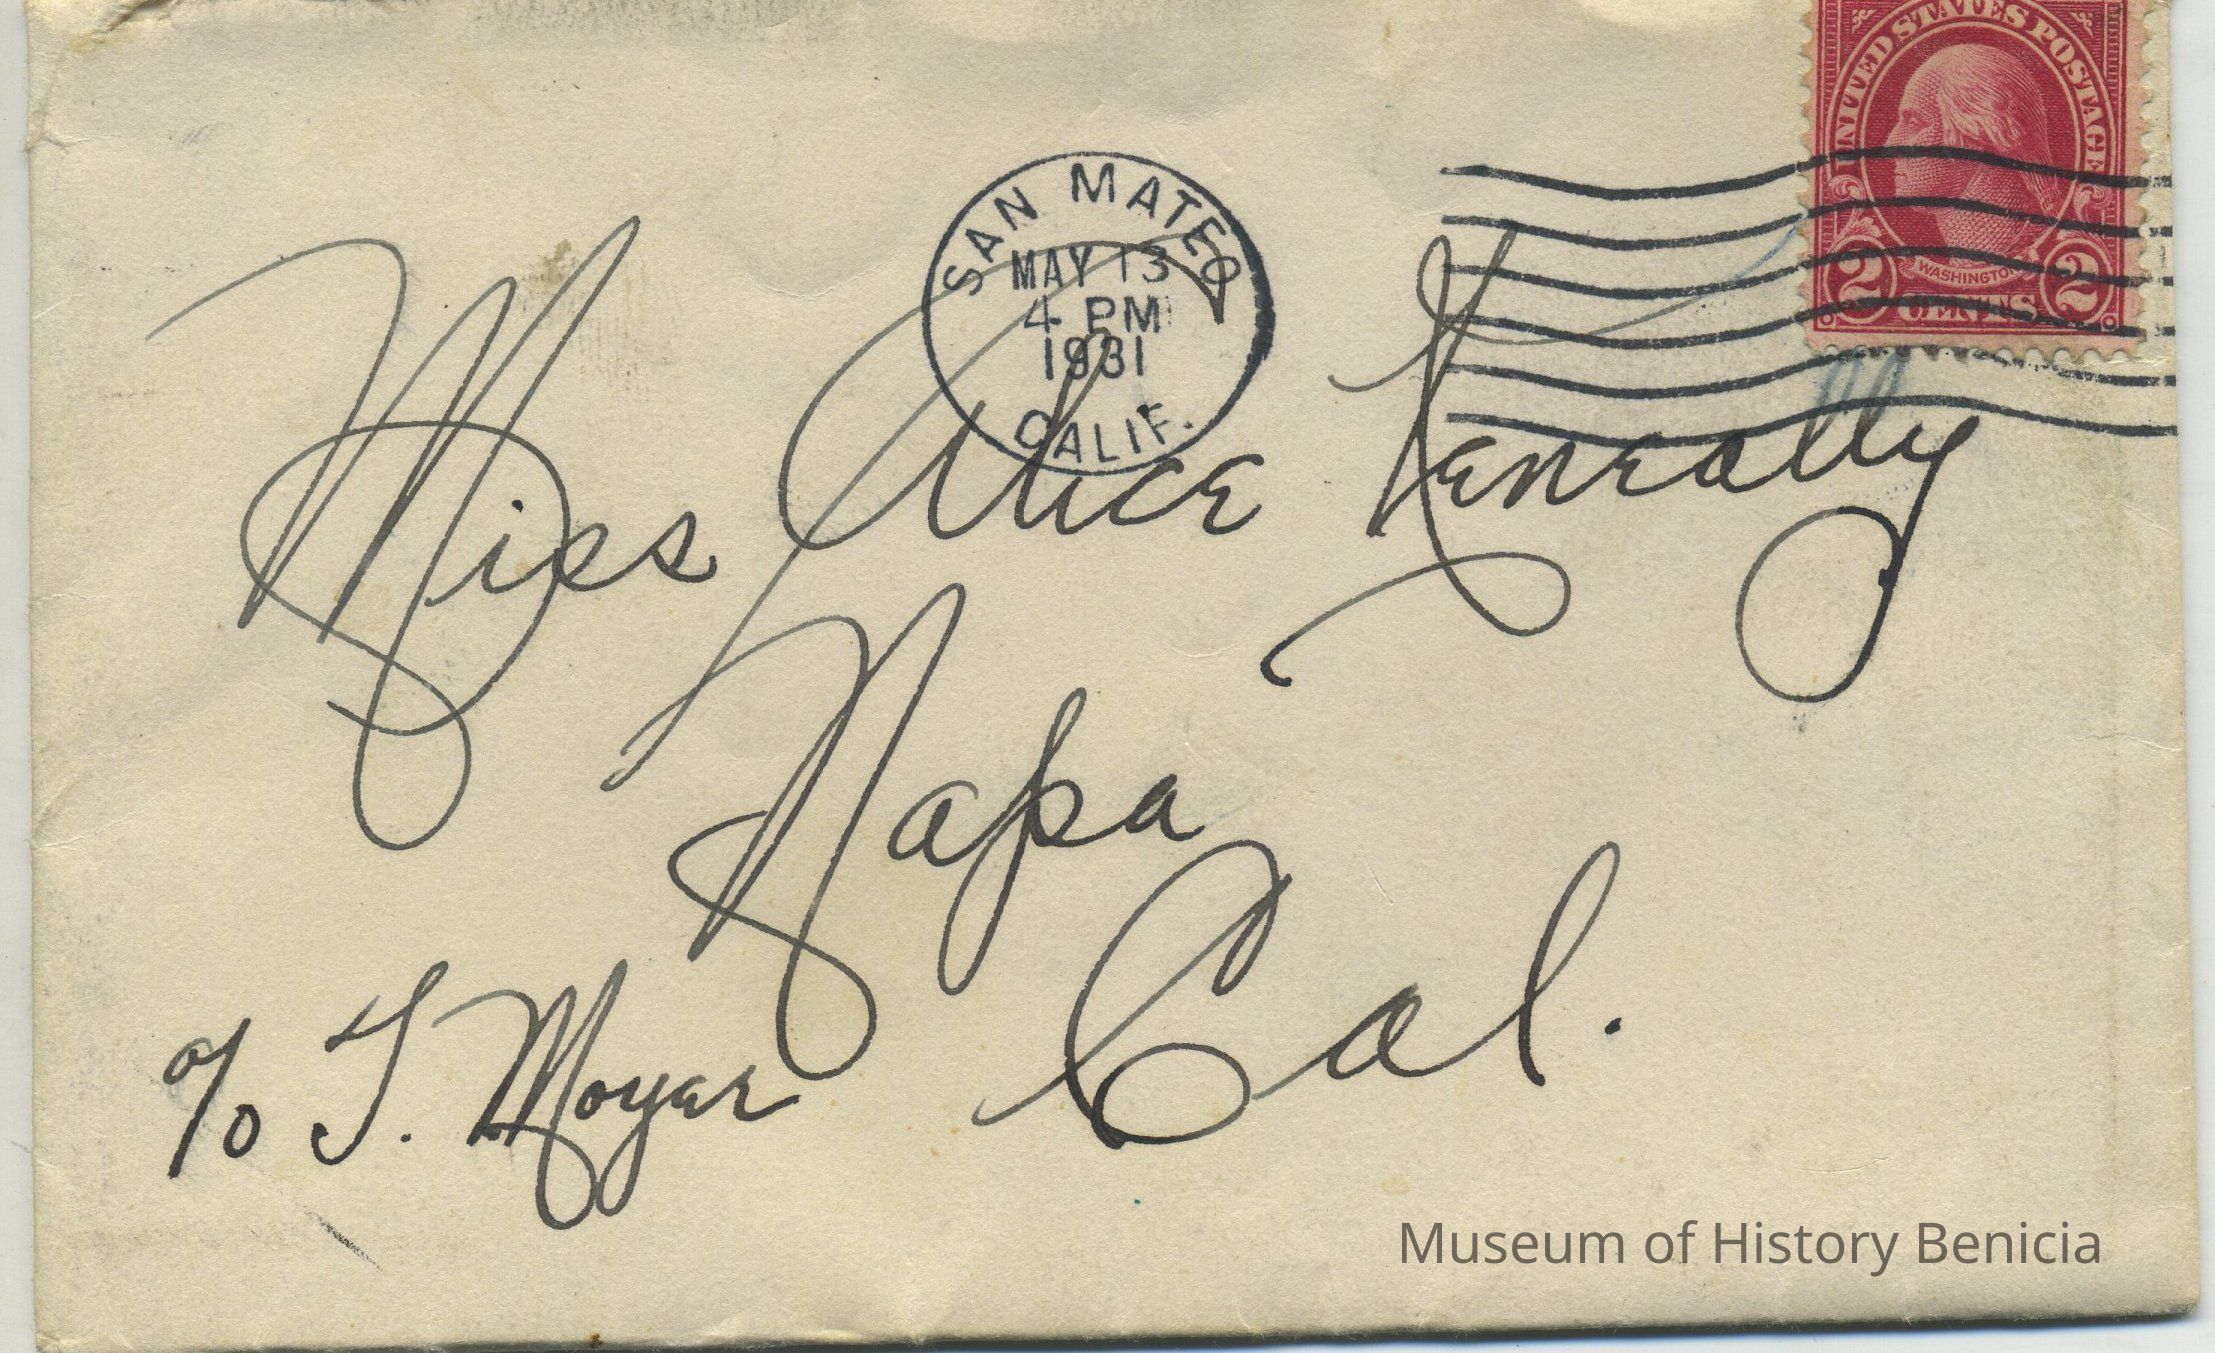 UNITED STATES POSTAGE
WASHINGTON
2 CENTS 2
SAN MATEO
MAY 13
4 PM
1931
CALIF.
Miss Alice Keneally
Napa
Cal.
c/o J. Moyer
Museum of History Benicia